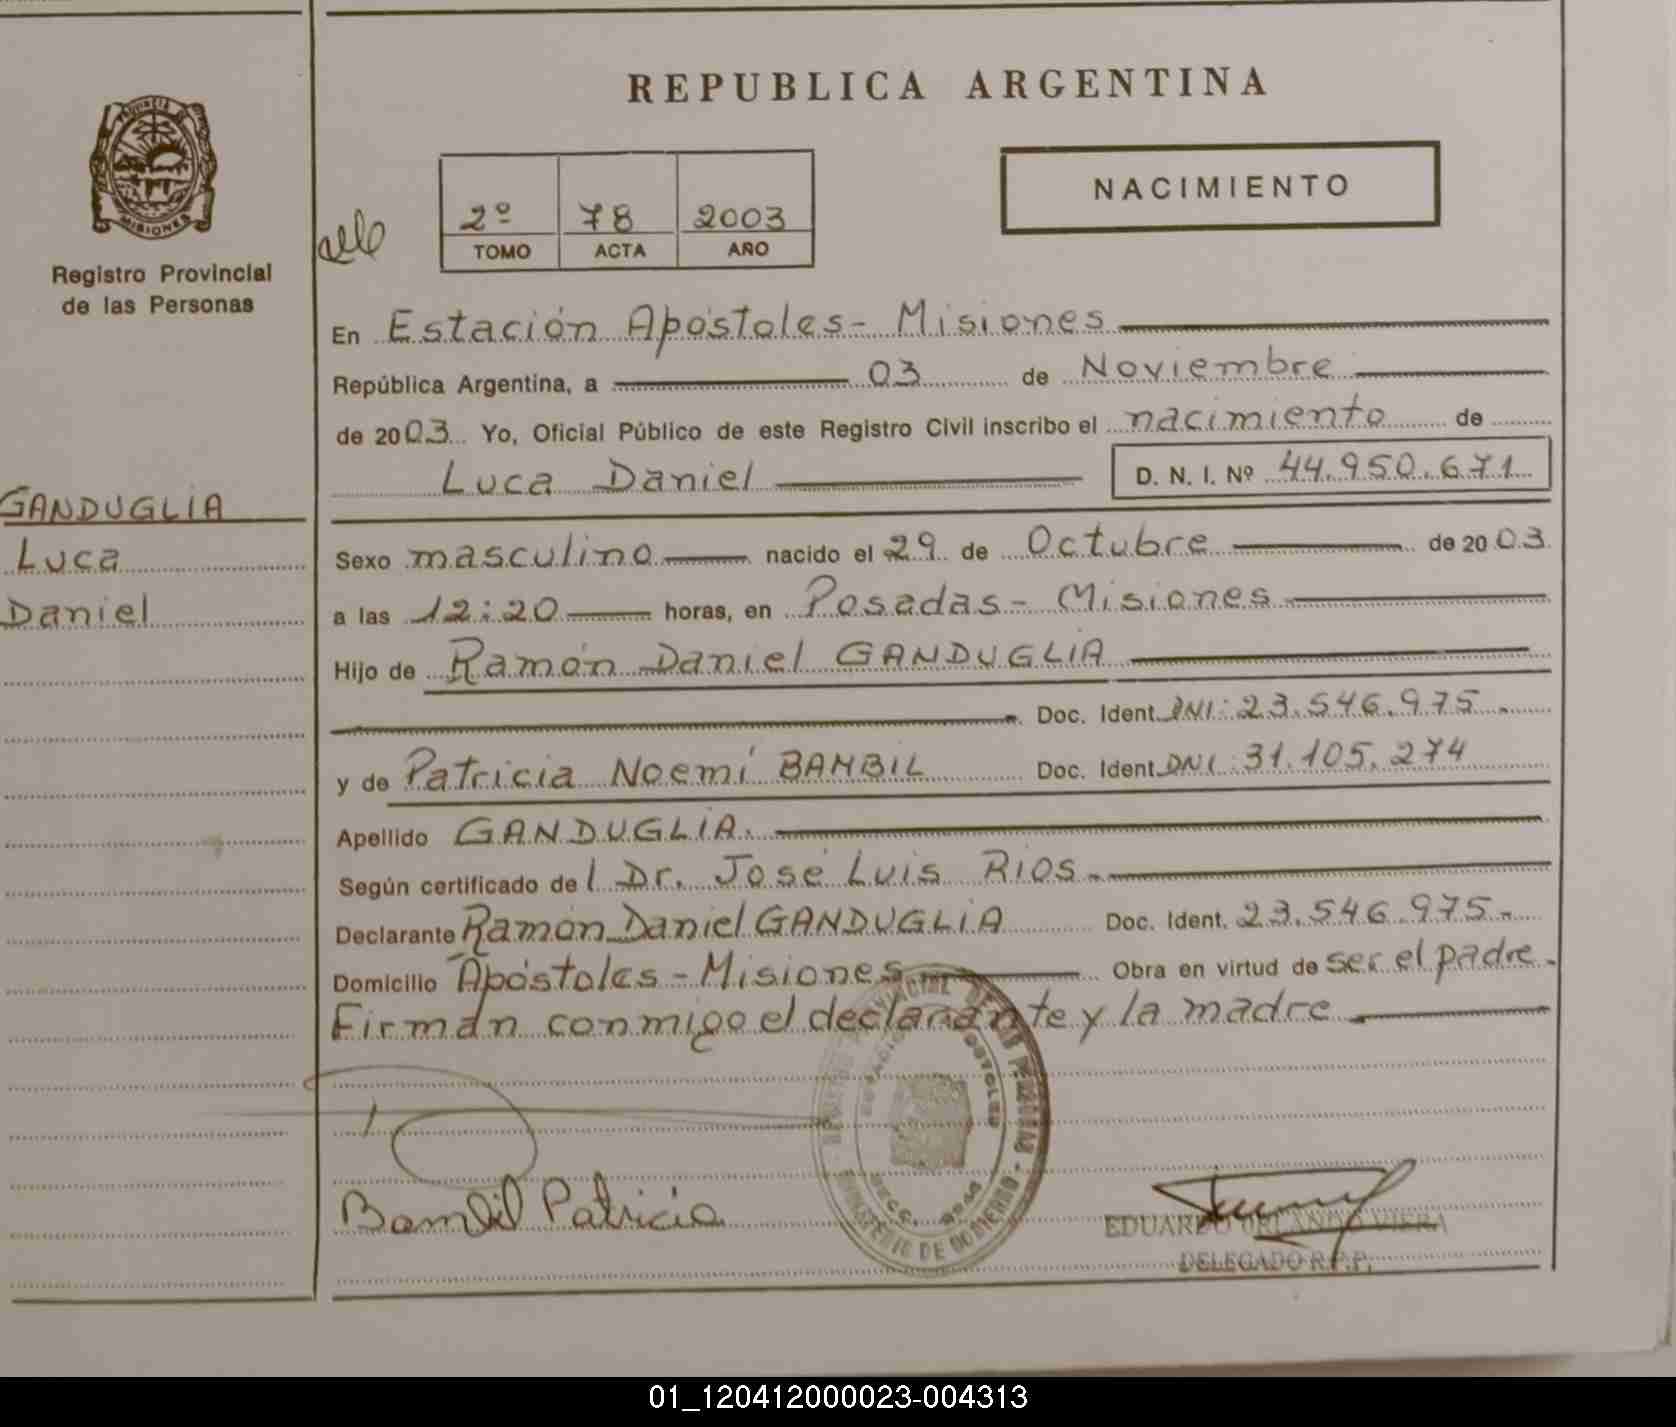 REPUBLICA ARGENTINA
PROVINCIA DE MISIONES
Registro Provincial
de las Personas
2º 78 2003
TOMO ACTA AÑO
NACIMIENTO
En Estación Apóstoles - Misiones
República Argentina, a 03 de Noviembre
de 2003. Yo, Oficial Público de este Registro Civil inscribo el nacimiento de
Luca Daniel D. N. I. Nº 44.950.671
GANDUGLIA
Luca
Daniel
Sexo masculino nacido el 29 de Octubre de 2003
a las 12:20 horas, en Posadas - Misiones
Hijo de Ramón Daniel GANDUGLIA
Doc. Ident. DNI: 23.546.975.
y de Patricia Noemí BAMBIL Doc. Ident. DNI: 31.105.274
Apellido GANDUGLIA.
Según certificado del Dr. José Luis RIOS.
Declarante Ramón Daniel GANDUGLIA Doc. Ident. 23.546.975.-
Domicilio Apóstoles - Misiones Obra en virtud de ser el padre.
Firman conmigo el declarante y la madre
REGISTRO PROVINCIAL DE LAS PERSONAS - MINISTERIO DE GOBIERNO -
Bambil Patricia
EDUARDO ORLANDO VIERA
DELEGADO R.P.P.
01_120412000023-004313